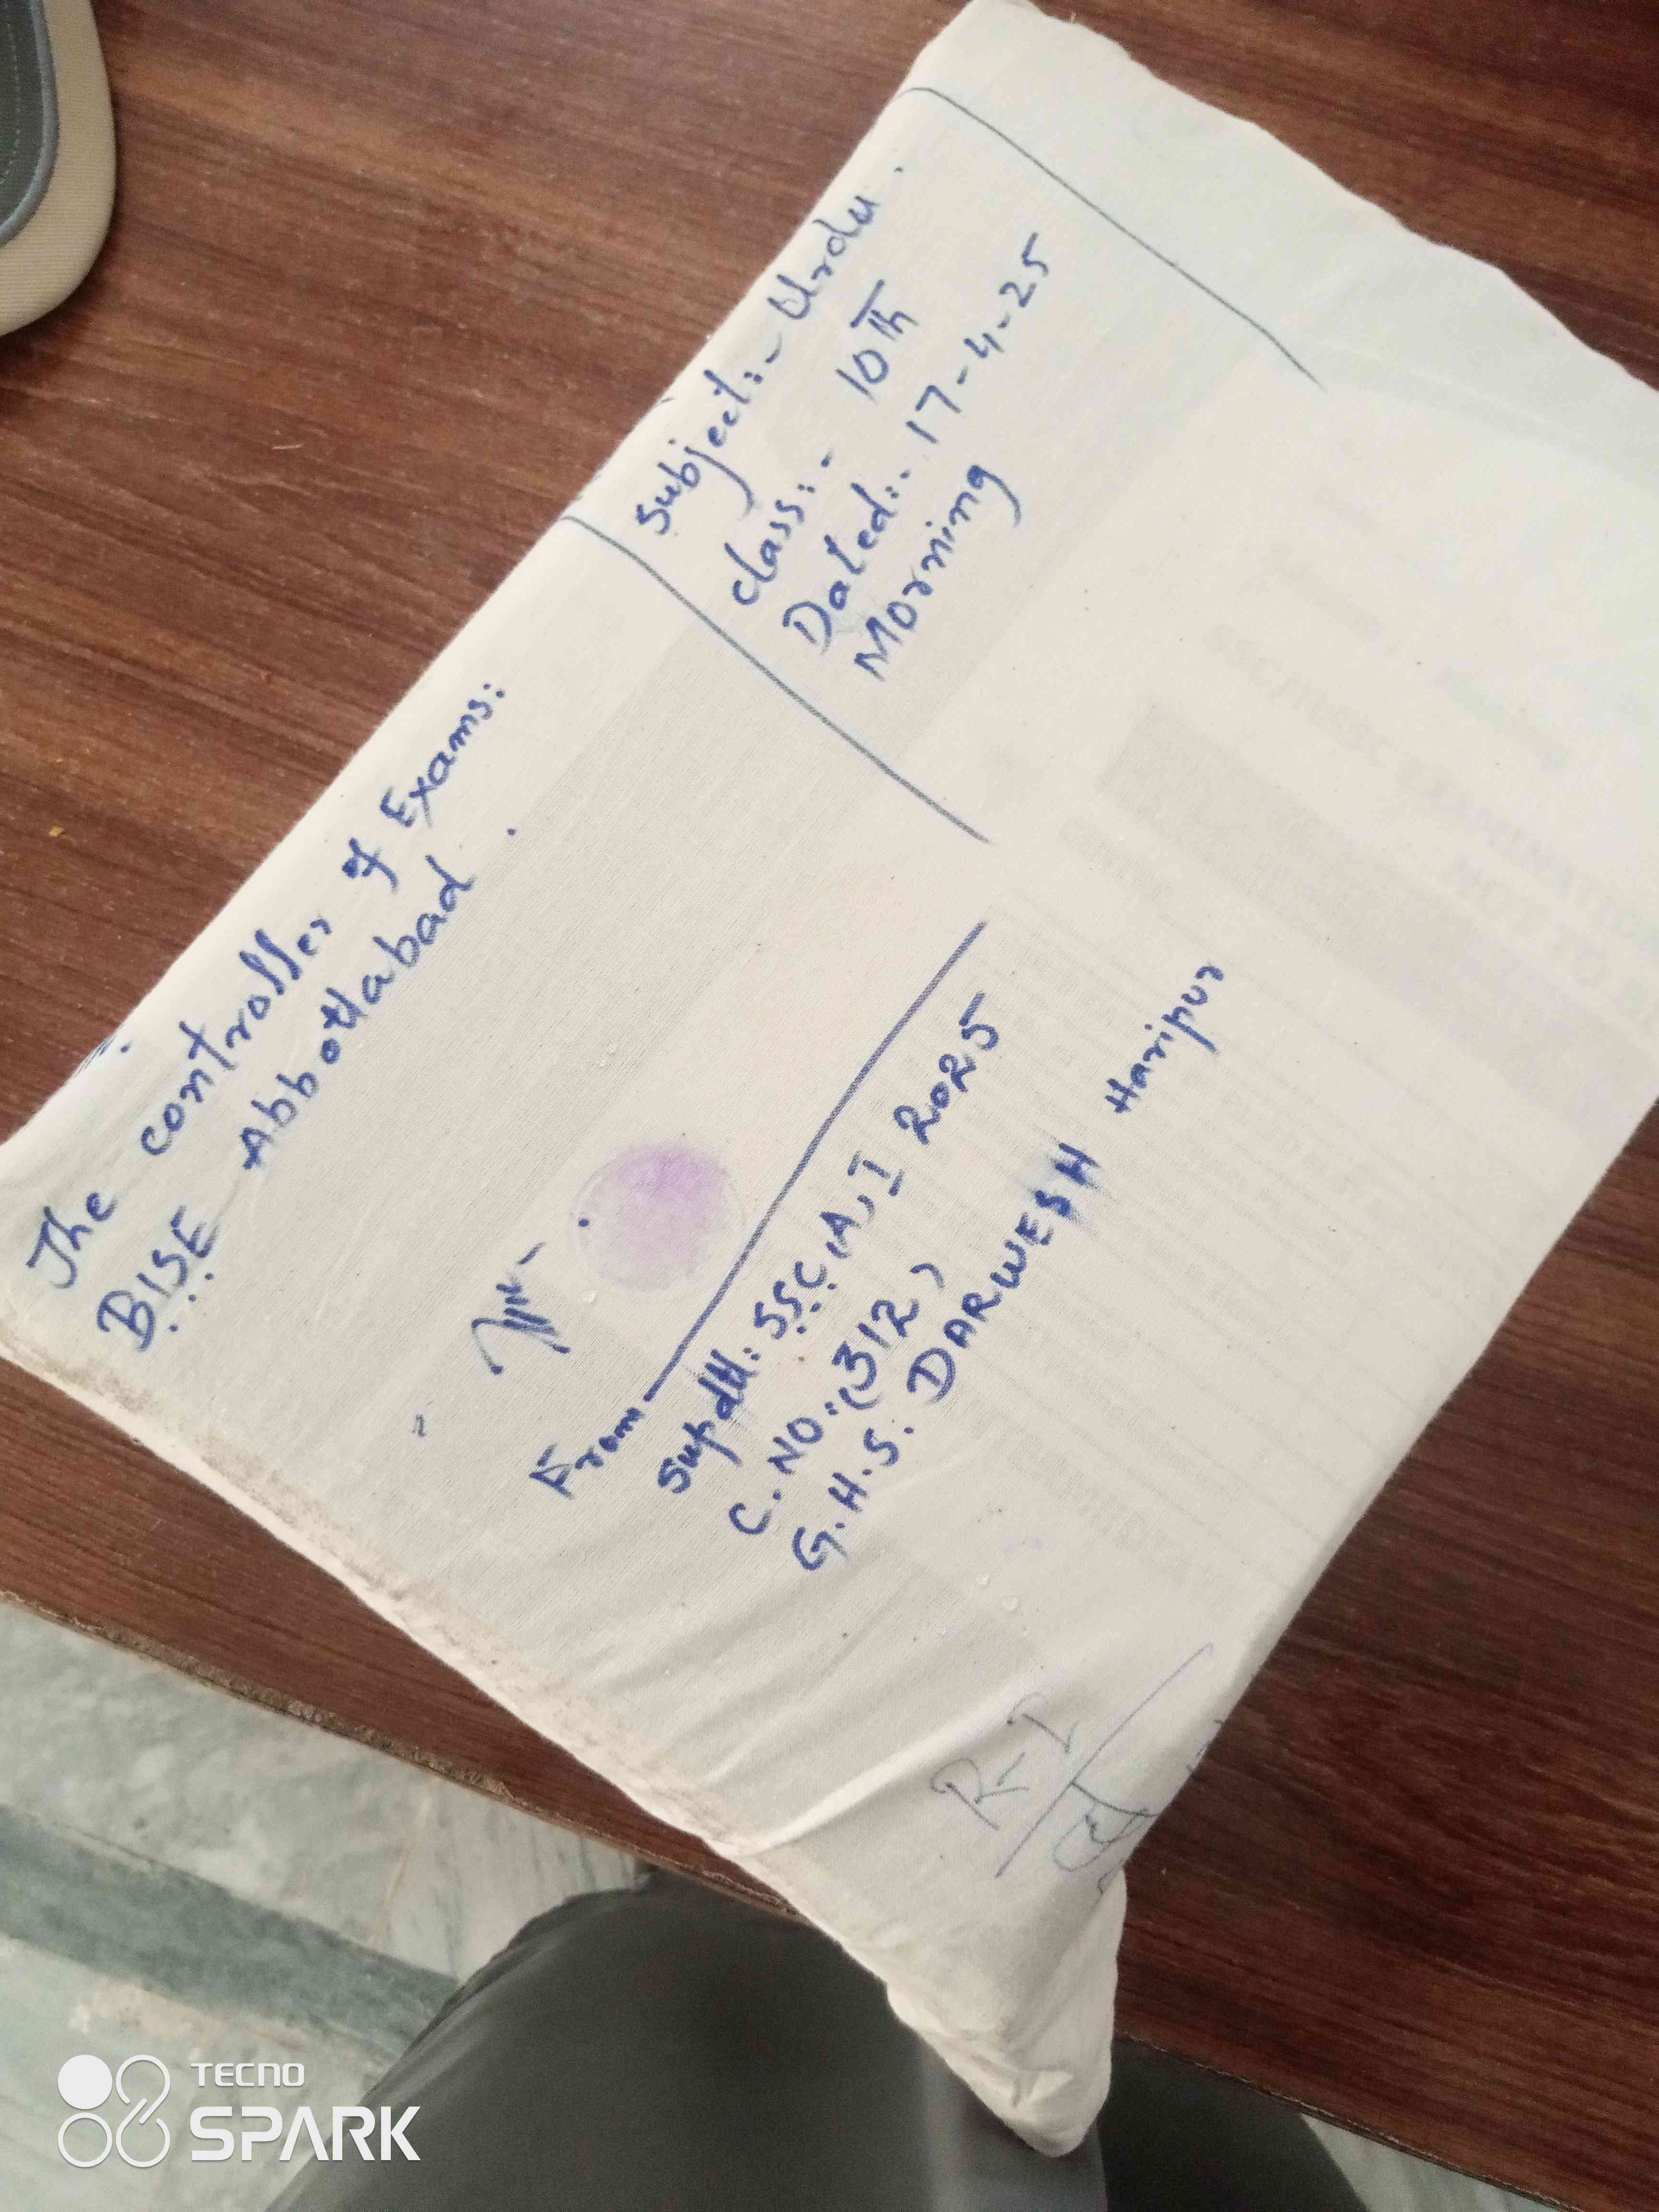 The controller of Exams:
BISE Abbottabad.
Subject:- Urdu.
class:- 10th
Dated:- 17-4-25
Morning
From
Supdtt: SSC(A)I 2025
C.NO:(312)
G.H.S. DARWESH Haripur
R-I
TECNO
SPARK